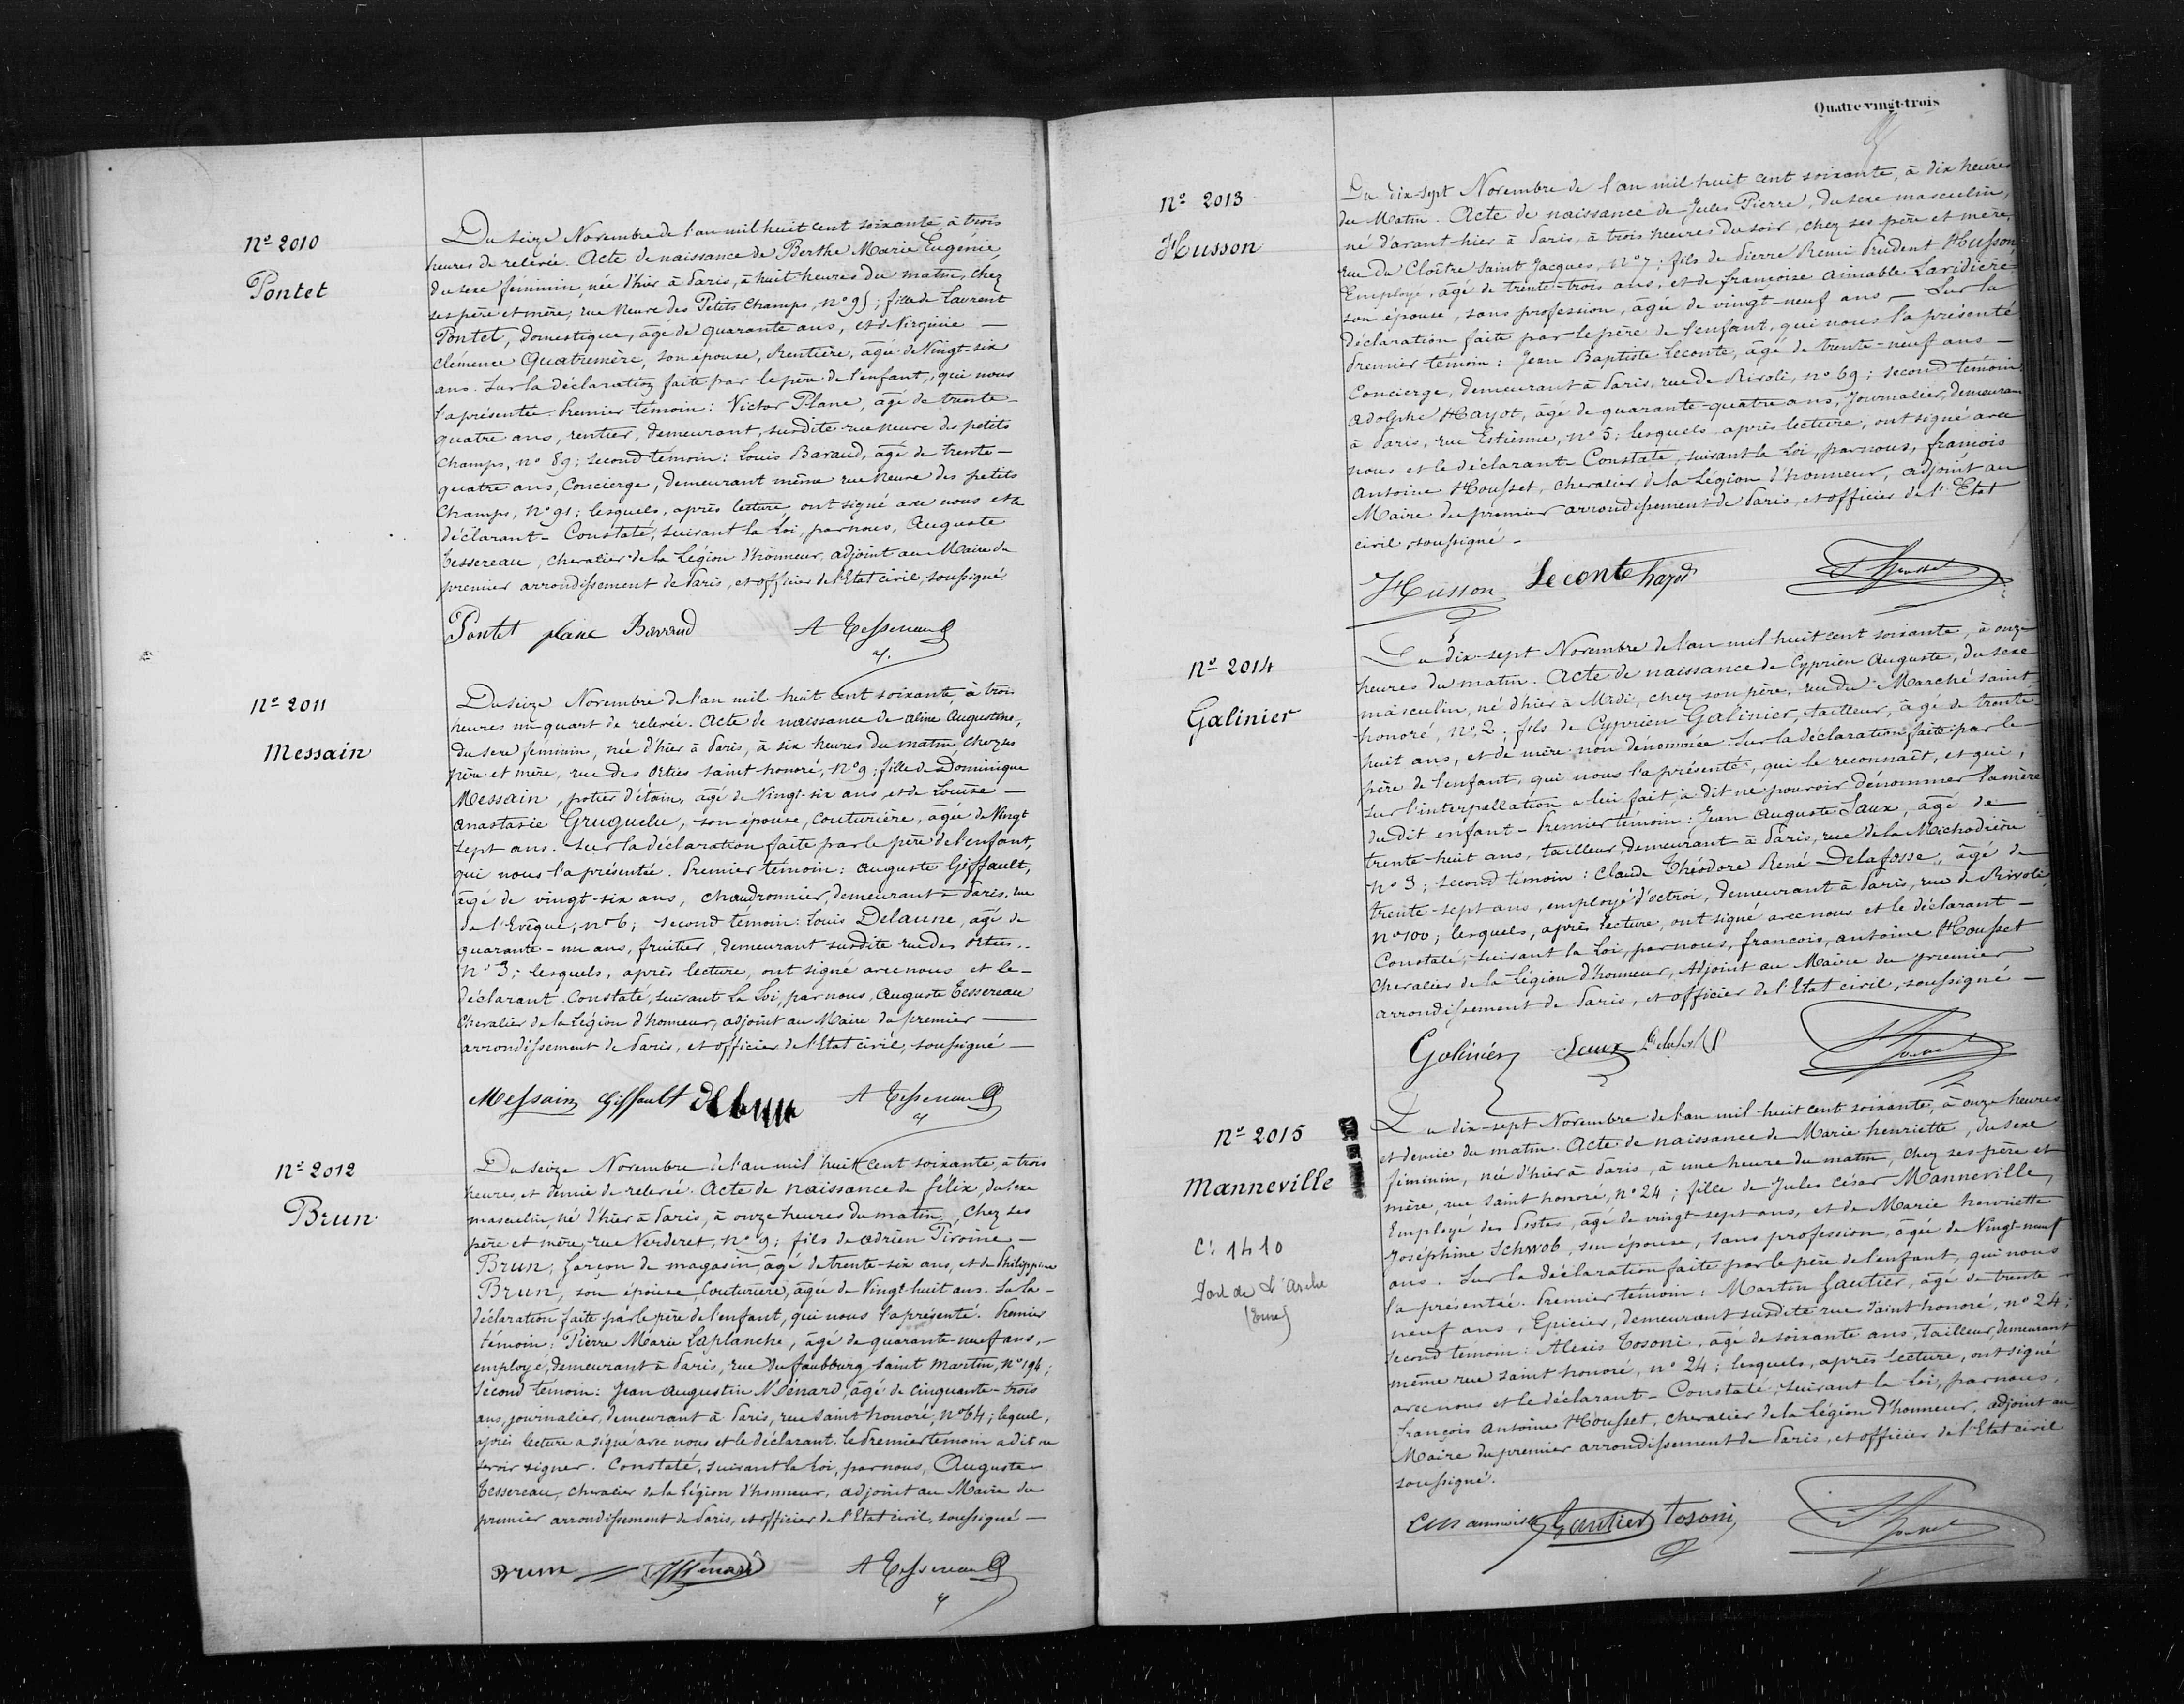 Nº 2010
Pontet
Du seize Novembre de l'an mil huit cent soixante, à trois
heures de relevée. Acte de naissance de Berthe Marie Eugénie,
du sexe féminin, née d'hier à Paris, à huit heures du matin, chez
ses père et mère, rue Neuve des Petits Champs, nº 95; fille de Laurent
Pontet, Domestique, âgé de quarante ans, et de Virginie —
Clémence Quatremère, son épouse, Rentière, âgée de Vingt-six
ans. Sur la déclaration faite par le père de l'enfant, qui nous
l'a présentée. Premier témoin: Victor Plane, âgé de trente-
quatre ans, rentier, demeurant, susdite rue Neuve des petits
champs, nº 89; second témoin: Louis Bavaud, âgé de trente-
quatre ans, Concierge, demeurant même rue Neuve des petits
Champs, nº 91; lesquels, après lecture, ont signé avec nous et le
déclarant - Constaté, suivant la Loi, par nous, Auguste
Tessereau, chevalier de la Légion d'honneur, adjoint au Maire du
premier arrondissement de Paris, et officier de l'Etat civil, soussigné.
Pontet plane Bavaud A Tessereau
Nº 2011
Messain
Du seize Novembre de l'an mil huit cent soixante, à trois
heures un quart de relevée. Acte de naissance de Aline Augustine,
du sexe féminin, née d'hier à Paris, à six heures du matin, chez ses
père et mère, rue des Orties saint honoré, nº 9; fille de Dominique
Messain, potier d'étain, âgé de Vingt-six ans, et de Louise —
Anastasie Gruguelu, son épouse, Couturière, âgée de Vingt
sept ans. Sur la déclaration faite par le père de l'enfant,
qui nous l'a présentée. Premier témoin: Auguste Giffault,
âgé de vingt-six ans, chaudronnier, demeurant à Paris, rue
de l'Evêque, nº 6; second témoin: Louis Delaune, âgé de
quarante-un ans, fruitier, demeurant susdite rue des Orties.
nº 3; lesquels, après lecture, ont signé avec nous et le -
déclarant. Constaté, suivant la Loi, par nous, Auguste Tessereau
Chevalier de la Légion d'honneur, adjoint au Maire du premier —
arrondissement de Paris, et officier de l'Etat civil, soussigné —
Messain Giffault A Tessereau
Nº 2012
Brun
Du seize Novembre de l'an mil huit cent soixante, à trois
heures et demie de relevée. Acte de naissance de Félix, du sexe
masculin, né d'hier à Paris, à onze heures du matin, chez ses
père et mère, rue Verderet, nº 9; fils de Adrien Piroine —
Brun, garçon de magasin, âgé de trente-six ans, et de Philippine
Brun, son épouse, Couturière, âgée de Vingt-huit ans. Sur la -
déclaration faite par le père de l'enfant, qui nous l'a présenté. Premier
témoin: Pierre Marie Laplanche, âgé de quarante-neuf ans, -
employé, demeurant à Paris, rue du faubourg saint Martin, nº 194;
Second témoin: Jean Augustin Ménard, âgé de cinquante-trois
ans, journalier, demeurant à Paris, rue Saint honoré, nº 64; lequel,
après lecture a signé avec nous et le déclarant. le Premier témoin a dit ne
savoir signer. Constaté, suivant la Loi, par nous, Auguste -
Tessereau, chevalier de la Légion d'honneur, adjoint au Maire du
premier arrondissement de Paris, et officier de l'Etat civil, soussigné —
Brun Ménard A Tessereau
Quatre-vingt-trois
Nº 2013
Husson
Du dix-sept Novembre de l'an mil huit cent soixante, à dix heures
du Matin. Acte de naissance de Jules Pierre, du sexe masculin,
né d'avant-hier à Paris, à trois heures du soir, chez ses père et mère,
rue du Cloître saint Jacques, nº 7; fils de Pierre Remi Prudent Husson,
Employé, âgé de trente-trois ans, et de françoise aimable Laridière
son épouse, sans profession, âgée de vingt-neuf ans — Sur la
déclaration faite par le père de l'enfant, qui nous l'a présenté
Premier témoin: Jean Baptiste Leconte, âgé de trente-neuf ans —
Concierge, demeurant à Paris, rue de Rivoli, nº 69; second témoin
adolphe Hayot, âgé de quarante-quatre ans, Journalier, demeurant
à Paris, rue Estienne, nº 5; lesquels après lecture, ont signé avec
nous et le déclarant - Constaté, suivant la Loi, par nous, françois
Antoine Housset, chevalier de la Légion d'honneur, adjoint au
Maire du premier arrondissement de Paris, et officier de l'Etat
civil, soussigné -
Husson Leconte hayot
Nº 2014
Galinier
Du dix-sept Novembre de l'an mil huit cent soixante, à onze
heures du matin. Acte de naissance de Cyprien Auguste, du sexe
masculin, né d'hier à Midi, chez son père, rue du Marché saint
honoré, nº 2; fils de Cyprien Galinier, tailleur, âgé de trente
huit ans, et de mère non dénommée. Sur la déclaration faite par le
père de l'enfant, qui nous l'a présenté, qui le reconnaît, et qui,
sur l'interpellation a lui fait, a dit ne pouvoir dénommer la mère
du dit enfant - Premier témoin: Jean Auguste Saux, âgé de
trente-huit ans, tailleur, demeurant à Paris, rue de la Michodière
nº 3; second témoin: Claude Théodore René Delafosse, âgé de
trente-sept ans, employé d'octroi, demeurant à Paris, rue de Rivoli
nº 100; lesquels, après lecture, ont signé avec nous et le déclarant —
Constaté, suivant la Loi, par nous, francois, antoine Housset
Chevalier de la Légion d'honneur, Adjoint au Maire du premier
arrondissement de Paris, et officier de l'Etat civil, soussigné —
Galinier Saux
Nº 2015
Manneville
C: 1410
Pont de L'Arche
(Eure)
Du dix-sept Novembre de l'an mil huit cent soixante, à onze heures
et demie du matin. Acte de naissance de Marie henriette, du sexe
féminin, née d'hier à Paris, à une heure du matin, chez ses père et
mère, rue Saint honoré, nº 24; fille de Jules César Manneville,
Employé des Postes, âgé de vingt-sept ans, et de Marie henriette
Joséphine Schwob, son épouse, sans profession, âgée de Vingt-neuf
ans. Sur la déclaration faite par le père de l'enfant, qui nous
l'a présentée. Premier témoin: Martin Gautier, âgé de trente
neuf ans, Epicier, demeurant susdite rue Saint honoré, nº 24;
Second témoin: Alexis Tosoni, âgé de soixante ans, tailleur, demeurant
même rue saint honoré, nº 24; lesquels, après lecture, ont signé
avec nous et le déclarant - Constaté, suivant la Loi, par nous,
françois Antoine Housset, chevalier de la Légion d'honneur, adjoint au
Maire du premier arrondissement de Paris, et officier de l'Etat civil
soussigné.
Gautier Tosoni